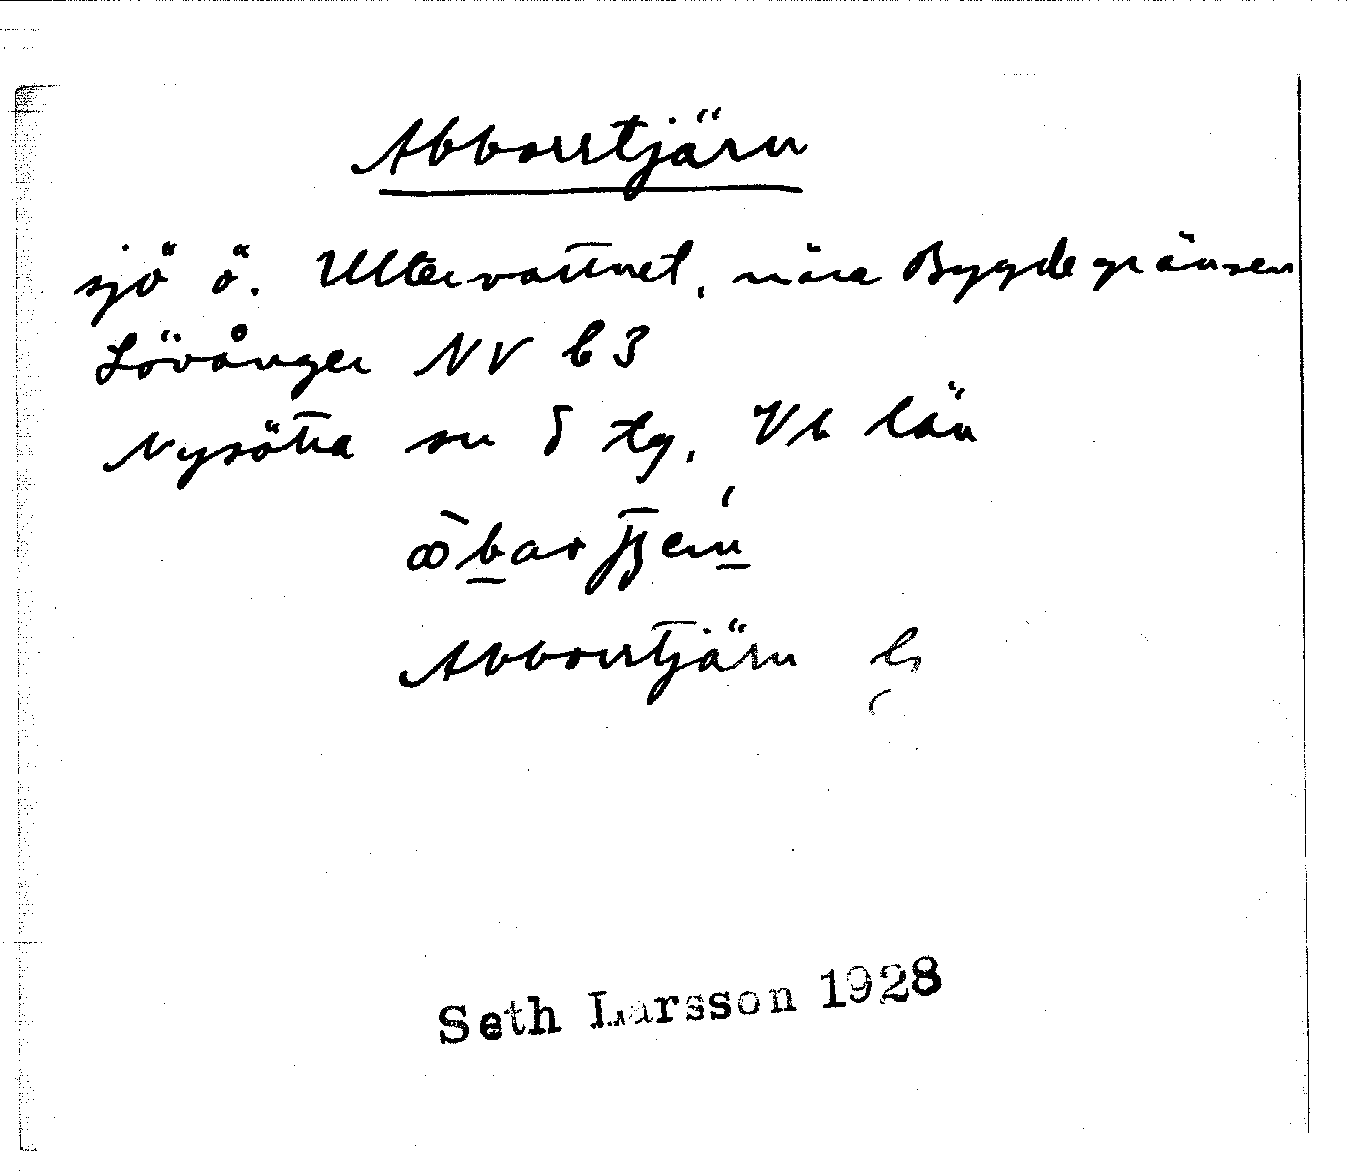 Abborrtjärn
sjö ö. Uttervattnet, nära Bygdegränsen
Lövånger NV b3
Nysätra sn tg. Vb län
Abborrtjärn
Seth Larsson 1928